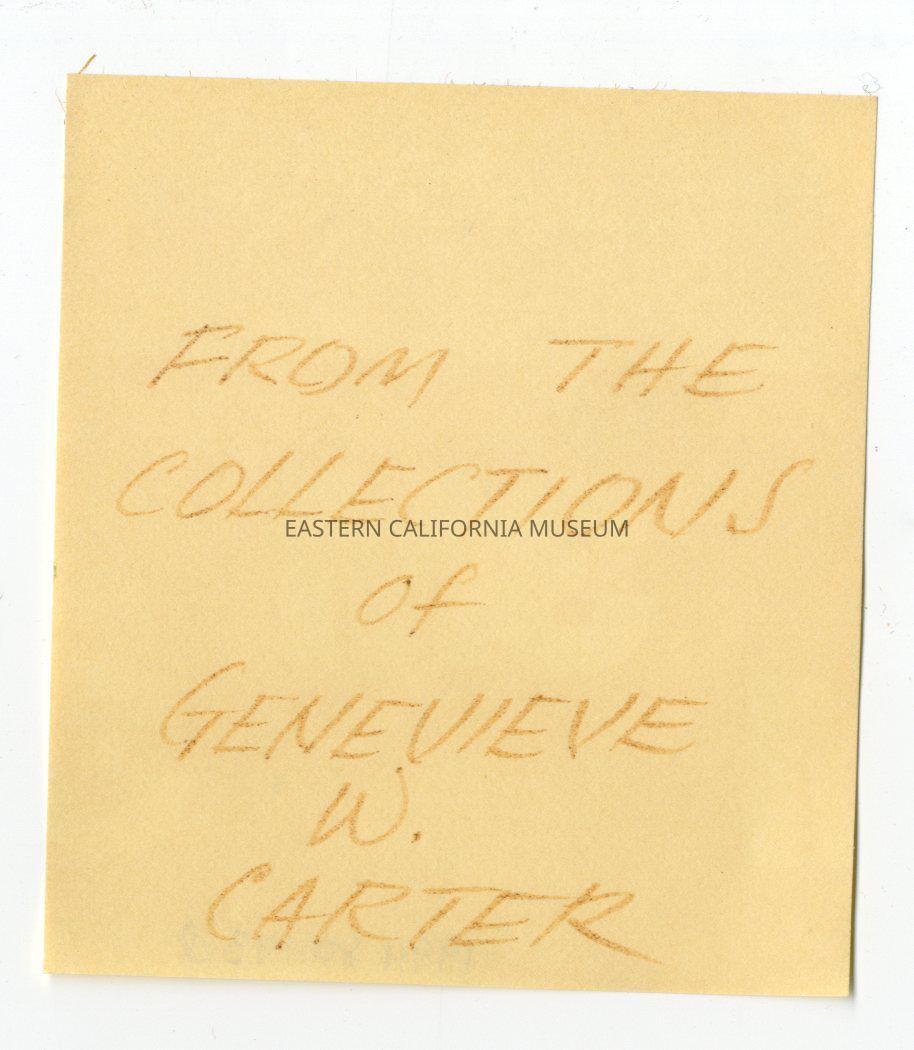 FROM THE
COLLECTIONS
EASTERN CALIFORNIA MUSEUM
of
GENEVIEVE
W.
CARTER